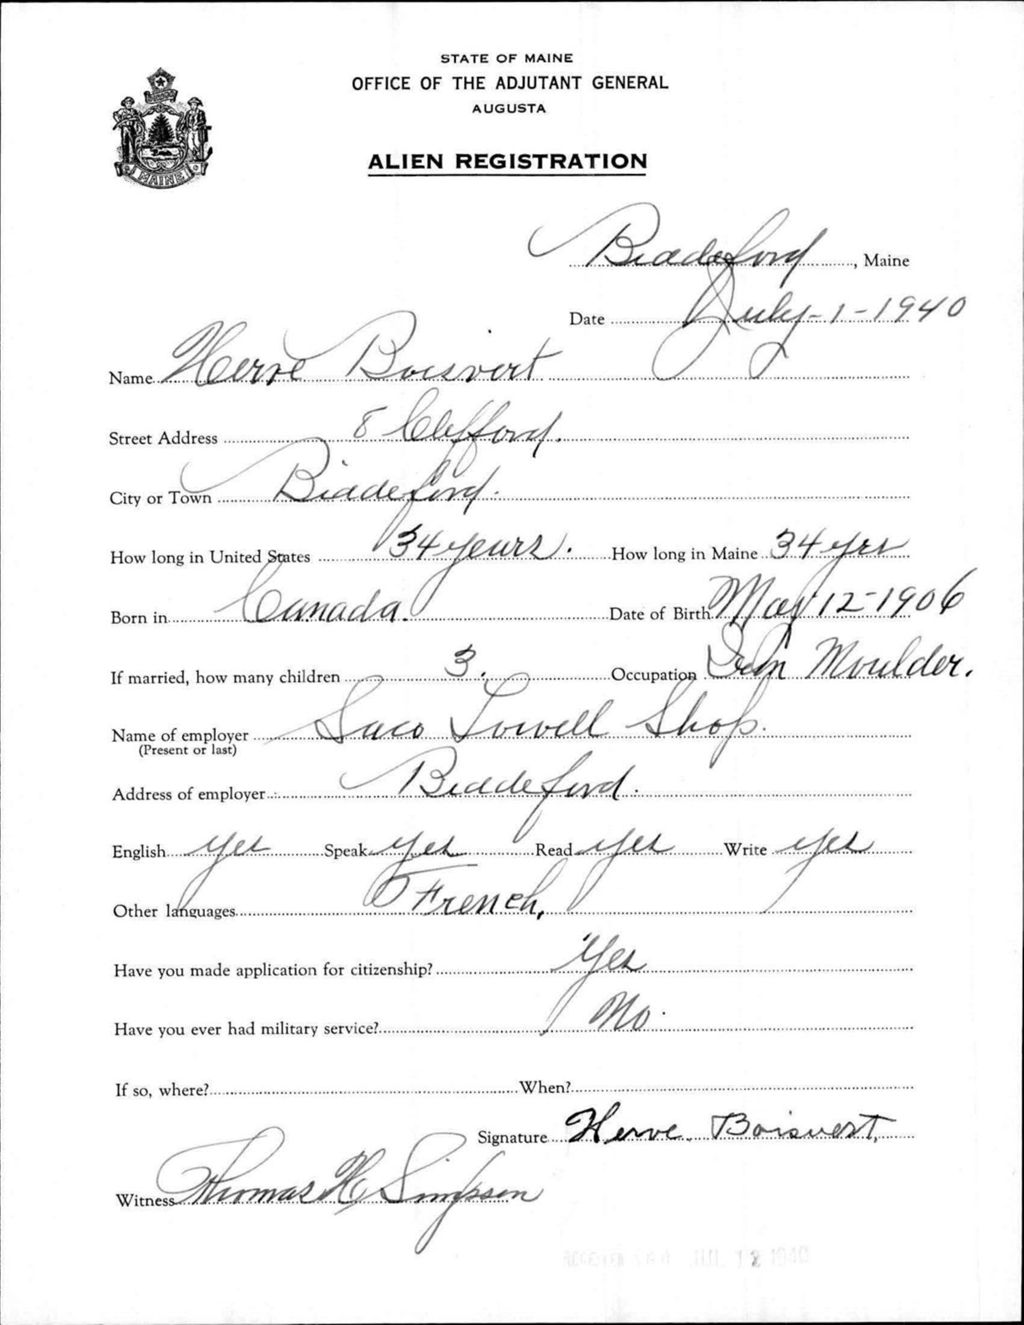 STATE OF MAINE
OFFICE OF THE ADJUTANT GENERAL
AUGUSTA
ALIEN REGISTRATION
MAINE
Biddeford, Maine
Date July-1-1940
Name Herve Boisvert
Street Address 8 Clifford.
City or Town Biddeford.
How long in United States 34 years. How long in Maine 34 yrs
Born in Canada. Date of Birth May 12-1906
If married, how many children 3. Occupation Iron Moulder.
Name of employer Saco Lowell Shop.
(Present or last)
Address of employer Biddeford.
English yes Speak yes Read yes Write yes
Other languages French.
Have you made application for citizenship? Yes
Have you ever had military service? No.
If so, where? When?
Signature Herve Boisvert.
Witness Thomas H Simpson
RECEIVED A.G.O. JUL 12 1940